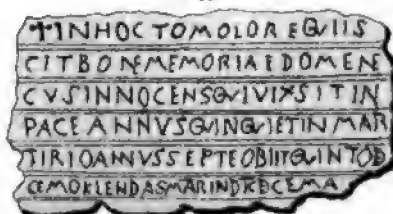 ✝INHOCTOMOLOREQUIIS
CITBONEMEMORIAEDOMEN
CVSINNOCENSQVIVIXSITIN
PACEANNVSQVINQVIETINMAR
TIRIOANNVSSEPTEOBIITQVINTOD
CEMOKLENDASMARINDREDCEMA